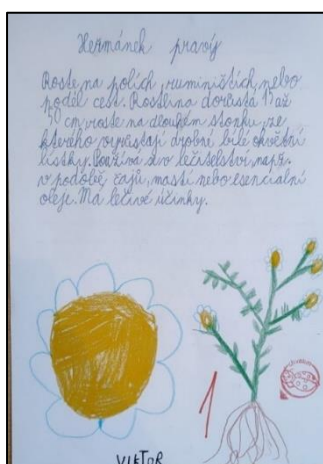 Heřmánek pravý
Roste na polích, ruminištích, nebo
podél cest. Rostlina dorůstá 15 až
50 cm, roste na dlouhém stonku, ze
kterého vyrůstají drobné bílé okvětní
lístky. Používá se v léčitelství např.
v podobě čajů, mastí nebo esenciální
oleje. Má léčivé účinky.
1
VIKTOR